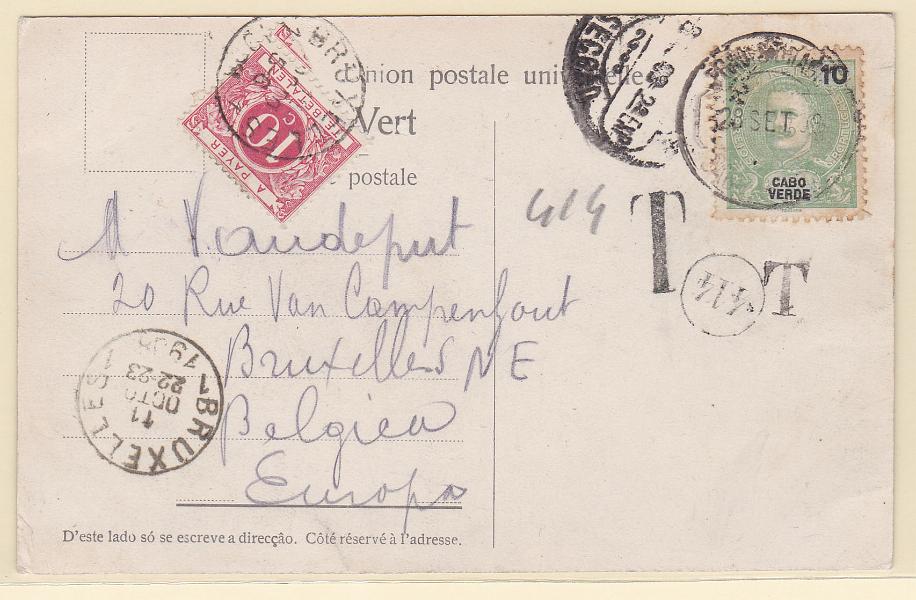 Union postale universelle
Vert
postale
10
CABO
VERDE
10
C
A PAYER
TE BETALEN
8 SET
T
T
414
414
M Vandeput
20 Rue Van Campenhout
Bruxelles NE
Belgica
Europa
BRUXELLES 1
11
OCTO
22-23
1908
D'este lado só se escreve a direcção. Côté réservé à l'adresse.